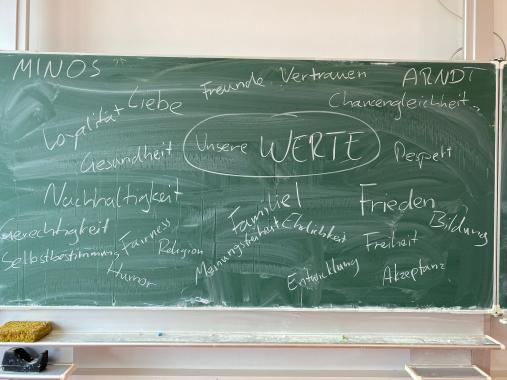 MINOS
Freunde
Vertrauen
ARNDT
Loyalität
Liebe
Chancengleichheit
Gesundheit
Unsere WERTE
Respekt
Nachhaltigkeit
Familie
Frieden
Bildung
Gerechtigkeit
Fairness
Meinungsfreiheit
Ehrlichkeit
Freiheit
Selbstbestimmung
Religion
Humor
Entwicklung
Akzeptanz